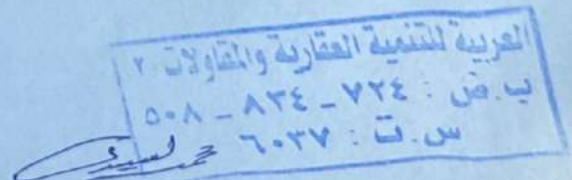 العربية للتنمية العقارية والمقاولات ٢
ب.ض : ٧٢٤ - ٨٣٤ - ٥٠٨
س.ت : ٦٠٣٧